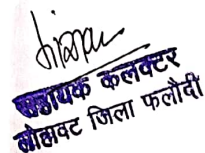 सहायक कलक्टर
लोहावट जिला फलौदी